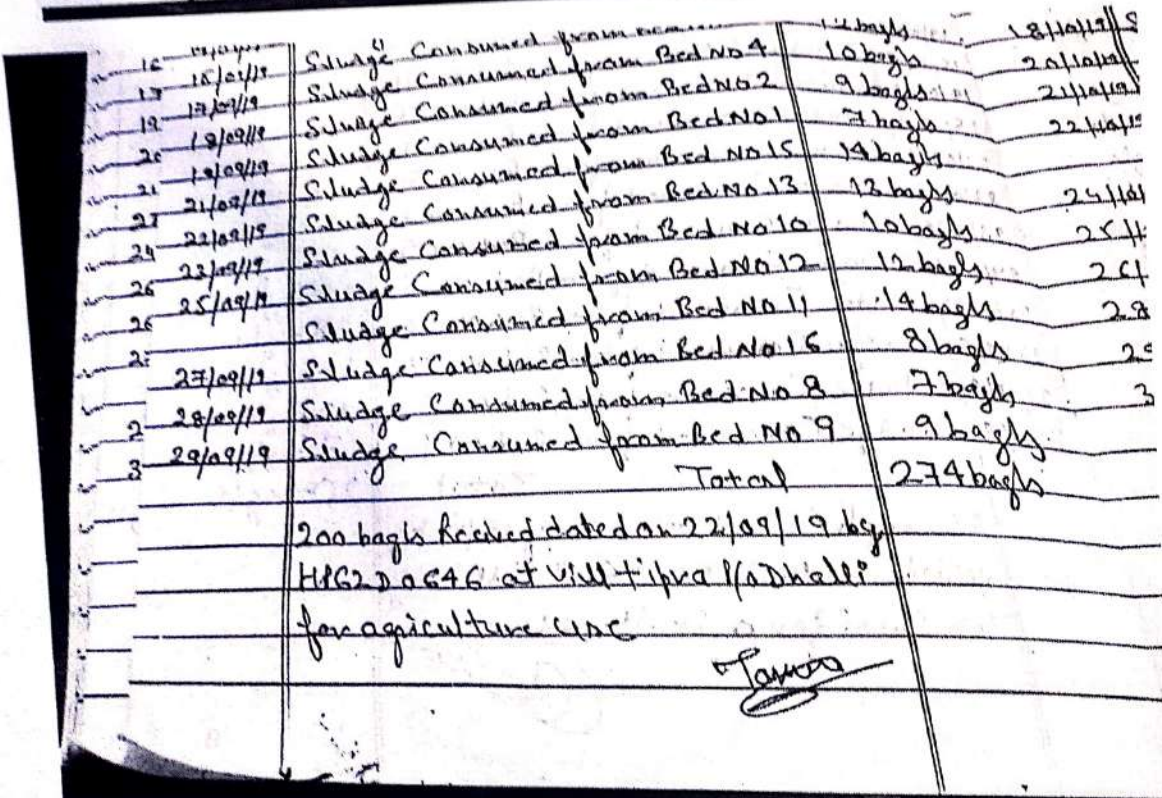 16 Sludge Consumed from 12 bags 18/10/19
17 16/09/19 Sludge Consumed from Bed No 4 10 bags 20/10/19
19 17/09/19 Sludge Consumed from Bed No 2 9 bags 21/10/19
20 18/09/19 Sludge Consumed from Bed No 1 7 bags 22/10/19
21 19/09/19 Sludge Consumed from Bed No 15 14 bags
23 21/09/19 Sludge Consumed from Bed No 13 13 bags 24/10/
24 22/09/19 Sludge Consumed from Bed No 10 10 bags 25/
26 23/09/19 Sludge Consumed from Bed No 12 12 bags 26/
26 25/09/19 Sludge Consumed from Bed No 11 14 bags 28
2 27/09/19 Sludge Consumed from Bed No 16 8 bags 2
2 28/09/19 Sludge Consumed from Bed No 8 7 bags 3
3 29/09/19 Sludge Consumed from Bed No 9 9 bags
Total 274 bags
200 bags Recived dated on 22/09/19 by
at Vill tipra Dhalli
for agriculture use